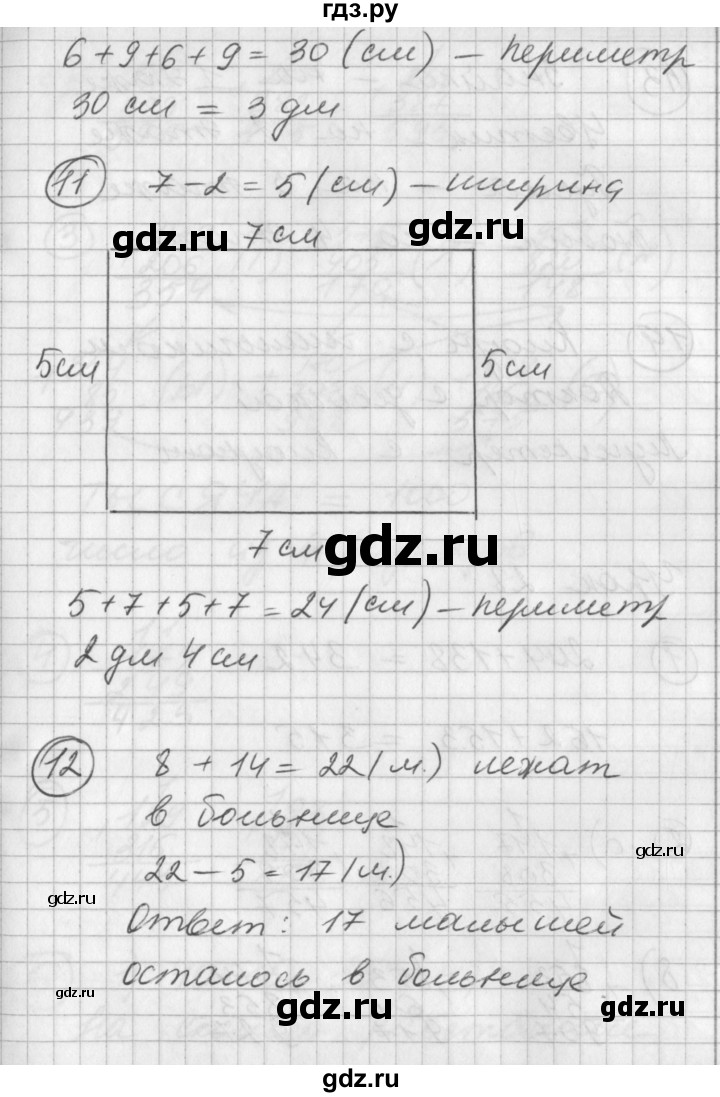 гдз.ру
6+9+6+9 = 30 (см) – периметр
30 см = 3 дм
11 7-2=5 (см) – ширина
gdz.ru
gdz.ru
7 см
5 см
5 см
7 см
gdz.ru
5+7+5+7=24 (см) – периметр
2 дм 4 см
12 8 + 14 = 22 (м.) лежат
в больнице
gdz.ru
22 – 5 = 17 (м.)
gdz.ru
Ответ: 17 малышей
осталось в больнице
gdz.ru
gdz.ru
gdz.ru
gdz.ru